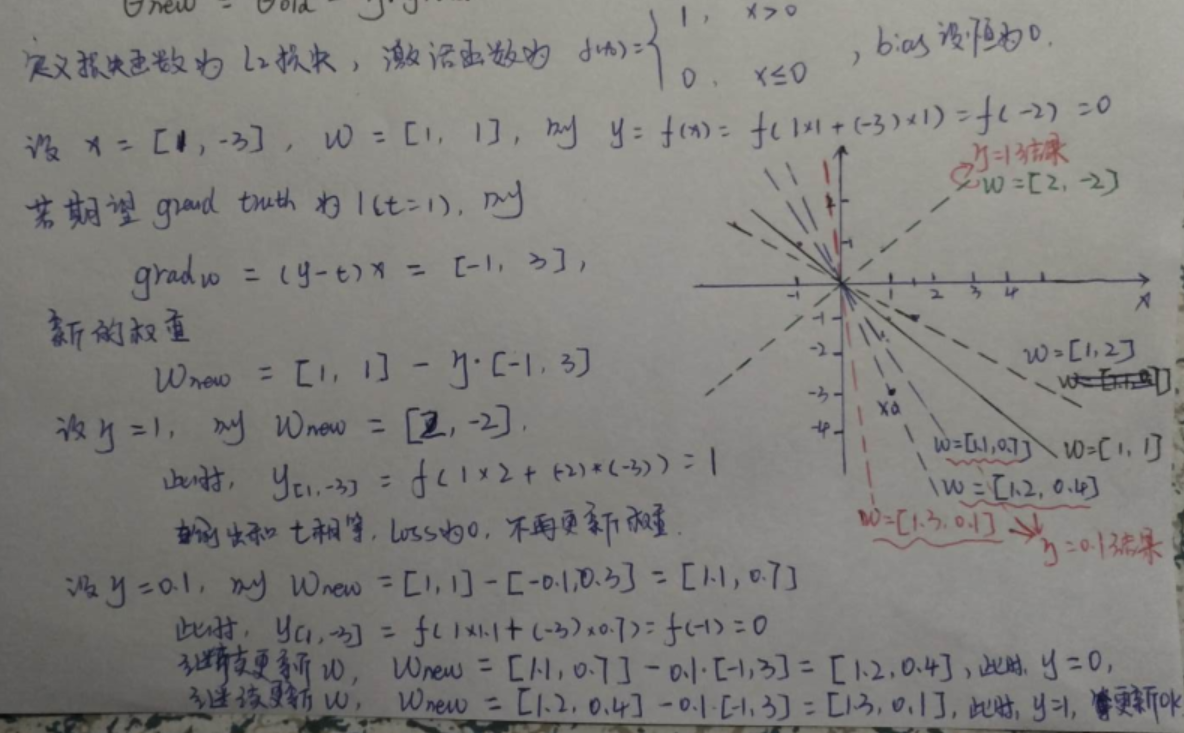 θnew = θold - η·
定义损失函数为 L2损失, 激活函数为 f(x)={ 1, x>0
0, x≤0 , bias 设恒为0.
设 x = [1, -3], w = [1, 1], 则 y = f(x) = f(1×1+(-3)×1) = f(-2) = 0
若期望 ground truth 为 1(t=1), 则
grad w = (y-t)x = [-1, 3],
新的权重
Wnew = [1, 1] - η·[-1, 3]
设 η=1, 则 Wnew = [2, -2].
此时, y[1,-3] = f(1×2+(-2)*(-3)) = 1
输出和 t相等, Loss为0, 不再更新权重.
设 η=0.1, 则 Wnew = [1, 1] - [-0.1, 0.3] = [1.1, 0.7]
此时, y[1,-3] = f(1×1.1+(-3)×0.7) = f(-1) = 0
继续更新 w, Wnew = [1.1, 0.7] - 0.1·[-1, 3] = [1.2, 0.4], 此时, y=0,
继续更新 w, Wnew = [1.2, 0.4] - 0.1·[-1, 3] = [1.3, 0.1], 此时, y=1, 更新OK
η=1结果
w=[2, -2]
-1 1 2 3 4
X
1
-1
-2
-3
-4
x0
w=[1, 2]
w=[1, 1]
w=[1.1, 0.7]
w=[1.2, 0.4]
w=[1.3, 0.1]
η=0.1结果